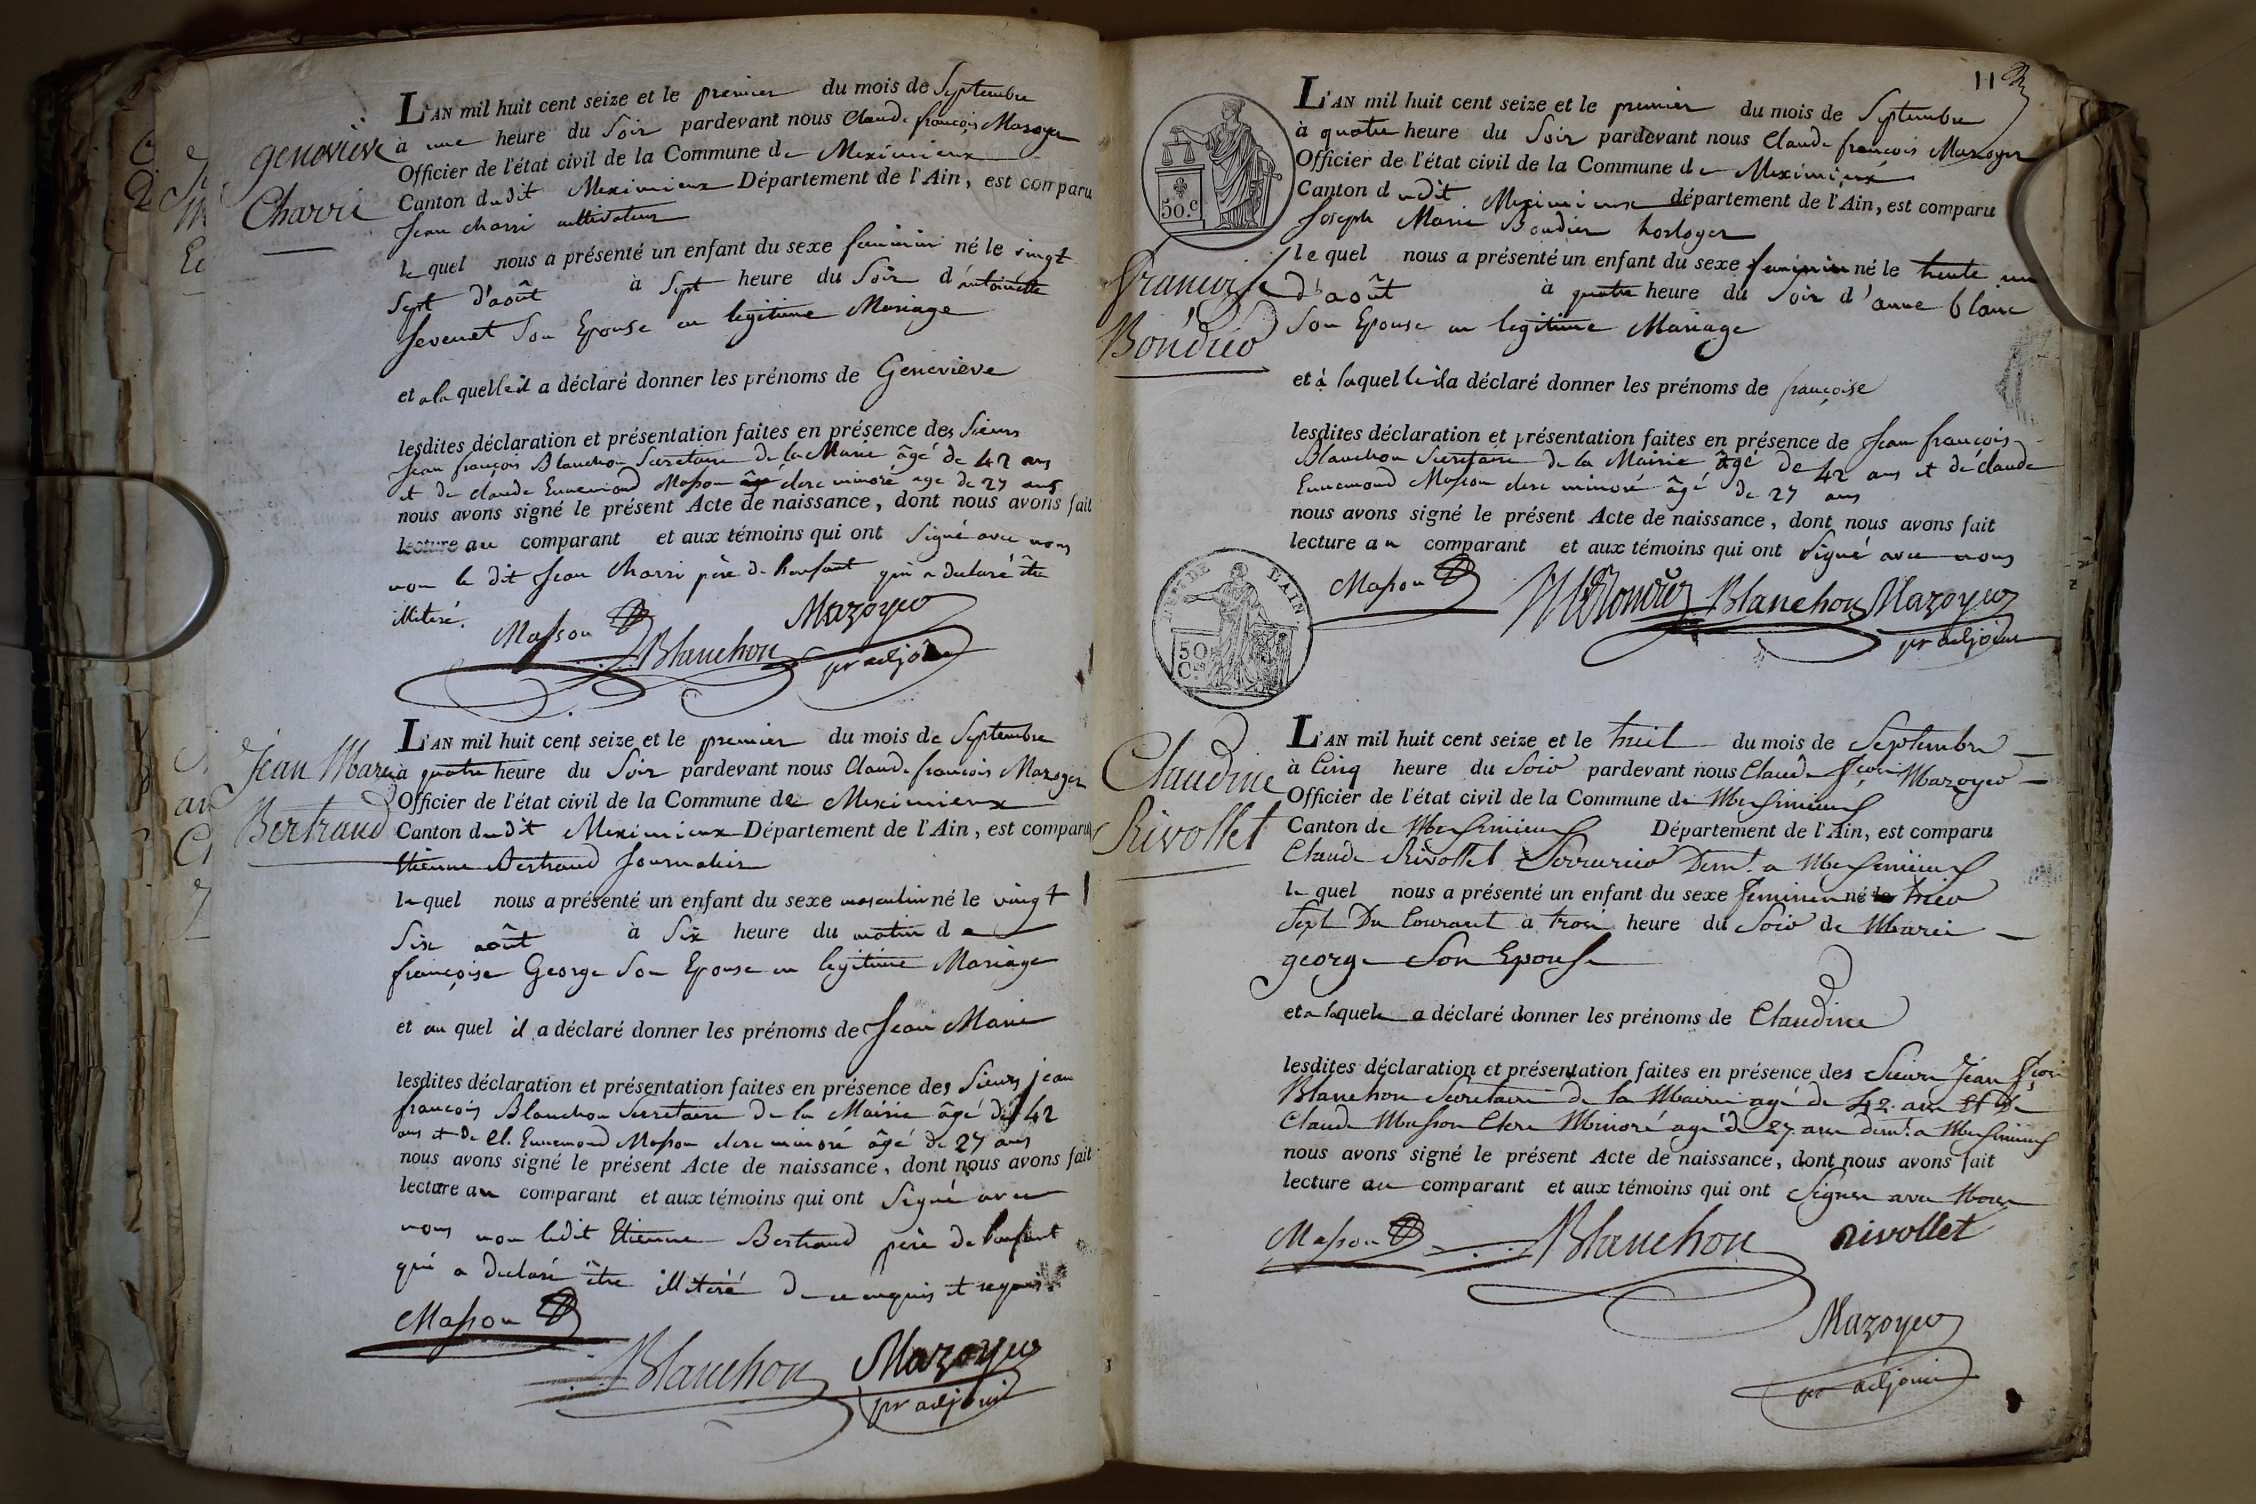 genevieve
Charri
L'AN mil huit cent seize et le premier du mois de Septembre
à une heure du Soir pardevant nous Claude françois Mazoyer
Officier de l'état civil de la Commune de Meximieux
Canton dudit Meximieux Département de l'Ain, est comparu
Jean charri cultivateur
lequel nous a présenté un enfant du sexe feminin né le vingt
Sept d'août à Sept heure du Soir d'antoinette
Son Epouse en legitime Mariage
et a la quelle il a déclaré donner les prénoms de Genevieve
lesdites déclaration et présentation faites en présence des Sieurs
Jean françois Blanchon Secretaire de la Mairie âgé de 42 ans
et de claude Ennemond Masson clerc minoré age de 27 ans
nous avons signé le présent Acte de naissance, dont nous avons fait
lecture au comparant et aux témoins qui ont Signé avec nous
non le dit Jean Charri père de l'enfant qui a declaré être
illiteré.
Masson Blanchon Mazoyer
pr adjoint
Jean Marie
Bertrand
L'AN mil huit cent seize et le premier du mois de Septembre
à quatre heure du Soir pardevant nous Claude françois Mazoyer
Officier de l'état civil de la Commune de Meximieux
Canton dudit Meximieux Département de l'Ain, est comparu
Etienne Bertrand Journalier
lequel nous a présenté un enfant du sexe masculin né le vingt
Six août à Six heure du matin de
françoise George Son Epouse en legitime Mariage
et au quel il a déclaré donner les prénoms de Jean Marie
lesdites déclaration et présentation faites en présence des Sieurs jean
françois Blanchon Secretaire de la Mairie âgé de 42
ans et De Cl. Ennemond Masson clerc minoré âgé de 27 ans
nous avons signé le présent Acte de naissance, dont nous avons fait
lecture au comparant et aux témoins qui ont Signé avec
nous non ledit Etienne Bertrand père de l'enfant
qui a declaré être illiteré de ce enquis et requis.
Masson
Blanchon Mazoyer
pr adjoint
11
50.c
françoise
L'AN mil huit cent seize et le premier du mois de Septembre
à quatre heure du Soir pardevant nous Claude françois Mazoyer
Officier de l'état civil de la Commune de Meximieux
Canton dudit Meximieux département de l'Ain, est comparu
Joseph Marie Boudier horloger
lequel nous a présenté un enfant du sexe feminin né le trente un
d'août à quatre heure du Soir d'anne blanc
Son Epouse en legitime Mariage
et à laquelle il a déclaré donner les prénoms de françoise
lesdites déclaration et présentation faites en présence de Jean françois
Blanchon Secretaire de la Mairie âgé de 42 ans et de claude
Ennemond Masson clerc minoré âgé de 27 ans
nous avons signé le présent Acte de naissance, dont nous avons fait
lecture au comparant et aux témoins qui ont Signé avec nous
DEP. DE L'AIN.
50 Cs
Masson Blanchon Mazoyer
pr adjoint
Claudine
Rivollet
L'AN mil huit cent seize et le du mois de Septembre
à Cinq heure du Soir pardevant nous Claude fçois Mazoyer
Officier de l'état civil de la Commune de Messimieux
Canton de Messimieux Département de l'Ain, est comparu
Claude Rivollet Serrurier Demt. a Messimieux
lequel nous a présenté un enfant du sexe feminin né le
Sept Du Courant a trois heure du Soir de Marie
george Son Epouse
et a laquele a déclaré donner les prénoms de Claudine
lesdites déclaration et présentation faites en présence des Sieurs Jean fçois
Blanchon Secretaire de la Mairie agé de 42 ans Et De
Claude Masson Clerc Minoré agé de 27 ans demt. a Messimieux
nous avons signé le présent Acte de naissance, dont nous avons fait
lecture au comparant et aux témoins qui ont Signer avec Nous
Masson Blanchon rivollet
Mazoyer
pr adjoint